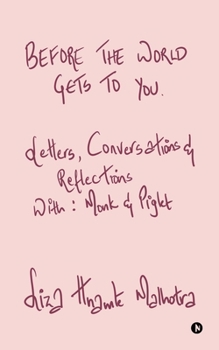 BEFORE THE WORLD
GETS TO YOU.
Letters, Conversations &
Reflections
With : Monk & Piglet
Liza Malhotra
N